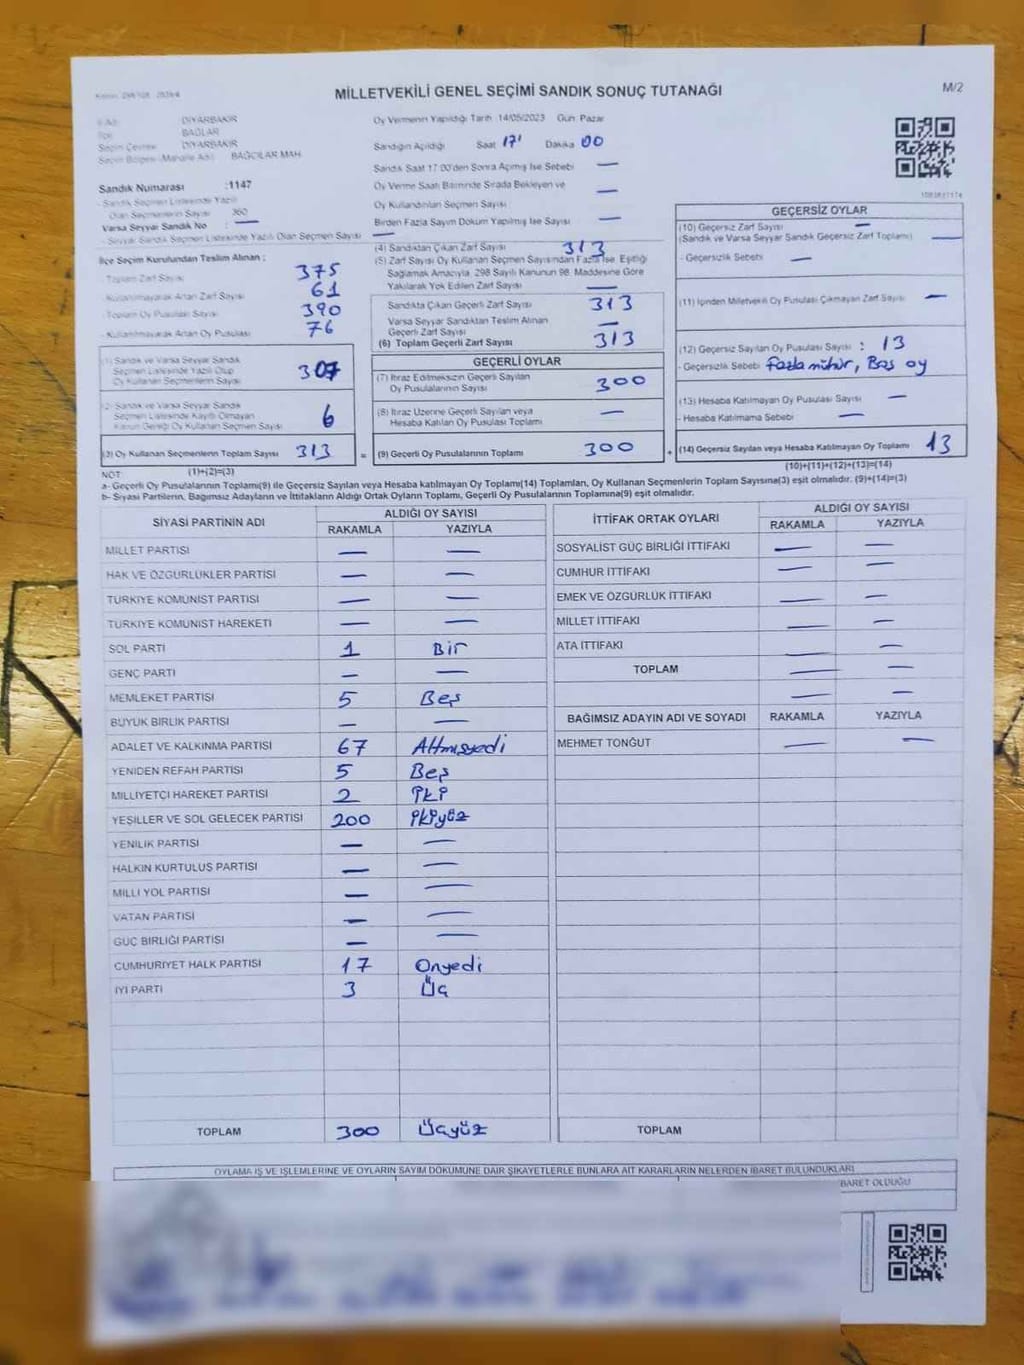 MİLLETVEKİLİ GENEL SEÇİMİ SANDIK SONUÇ TUTANAĞI
M/2
İl Adı : DİYARBAKIR
İlçe : BAĞLAR
Seçim Çevresi : DİYARBAKIR
Seçim Bölgesi (Mahalle Adı) : BAĞCILAR MAH.
Sandık Numarası :1147
- Sandık Seçmen Listesinde Yazılı
Olan Seçmenlerin Sayısı : 360
Varsa Seyyar Sandık No : —
- Seyyar Sandık Seçmen Listesinde Yazılı Olan Seçmen Sayısı : —
İlçe Seçim Kurulundan Teslim Alınan ;
- Toplam Zarf Sayısı : 375
- Kullanılmayarak Artan Zarf Sayısı : 61
- Toplam Oy Pusulası Sayısı : 390
- Kullanılmayarak Artan Oy Pusulası : 76
(1) Sandık ve Varsa Seyyar Sandık
Seçmen Listesinde Yazılı Olup
Oy Kullanan Seçmenlerin Sayısı 307
(2) Sandık ve Varsa Seyyar Sandık
Seçmen Listesinde Kayıtlı Olmayan
Kanun Gereği Oy Kullanan Seçmen Sayısı 6
(3) Oy Kullanan Seçmenlerin Toplam Sayısı 313
Oy Vermenin Yapıldığı Tarih :14/05/2023 Gün: Pazar
Sandığın Açıldığı Saat 17 Dakika 00
Sandık Saat 17:00'den Sonra Açılmış İse Sebebi —
Oy Verme Saati Bitiminde Sırada Bekleyen ve
Oy Kullandırılan Seçmen Sayısı —
Birden Fazla Sayım Döküm Yapılmış İse Sayısı —
(4) Sandıktan Çıkan Zarf Sayısı 313
(5) Zarf Sayısı Oy Kullanan Seçmen Sayısından Fazla İse, Eşitliği
Sağlamak Amacıyla, 298 Sayılı Kanunun 98. Maddesine Göre
Yakılarak Yok Edilen Zarf Sayısı —
Sandıkta Çıkan Geçerli Zarf Sayısı 313
Varsa Seyyar Sandıktan Teslim Alınan
Geçerli Zarf Sayısı —
(6) Toplam Geçerli Zarf Sayısı 313
GEÇERLİ OYLAR
(7) İtiraz Edilmeksizin Geçerli Sayılan
Oy Pusulalarının Sayısı 300
(8) İtiraz Üzerine Geçerli Sayılan veya
Hesaba Katılan Oy Pusulası Toplamı —
= (9) Geçerli Oy Pusulalarının Toplamı 300
GEÇERSİZ OYLAR
(10) Geçersiz Zarf Sayısı —
(Sandık ve Varsa Seyyar Sandık Geçersiz Zarf Toplamı) —
- Geçersizlik Sebebi —
(11) İçinden Milletvekili Oy Pusulası Çıkmayan Zarf Sayısı —
(12) Geçersiz Sayılan Oy Pusulası Sayısı : 13
- Geçersizlik Sebebi Fazla mühür, Boş oy
(13) Hesaba Katılmayan Oy Pusulası Sayısı —
- Hesaba Katılmama Sebebi —
+ (14) Geçersiz Sayılan veya Hesaba Katılmayan Oy Toplamı 13
NOT: (1)+(2)=(3)
(10)+(11)+(12)+(13)=(14)
a- Geçerli Oy Pusulalarının Toplamı(9) ile Geçersiz Sayılan veya Hesaba Katılmayan Oy Toplamı(14) Toplamları, Oy Kullanan Seçmenlerin Toplam Sayısına(3) eşit olmalıdır. (9)+(14)=(3)
b- Siyasi Partilerin, Bağımsız Adayların ve İttifakların Aldığı Ortak Oyların Toplamı, Geçerli Oy Pusulalarının Toplamına(9) eşit olmalıdır.
SİYASİ PARTİNİN ADI ALDIĞI OY SAYISI
RAKAMLA YAZIYLA
MİLLET PARTİSİ — —
HAK VE ÖZGÜRLÜKLER PARTİSİ — —
TÜRKİYE KOMÜNİST PARTİSİ — —
TÜRKİYE KOMÜNİST HAREKETİ — —
SOL PARTİ 1 Bir
GENÇ PARTİ — —
MEMLEKET PARTİSİ 5 Beş
BÜYÜK BİRLİK PARTİSİ — —
ADALET VE KALKINMA PARTİSİ 67 Altmışyedi
YENİDEN REFAH PARTİSİ 5 Beş
MİLLİYETÇİ HAREKET PARTİSİ 2 İki
YEŞİLLER VE SOL GELECEK PARTİSİ 200 İkiyüz
YENİLİK PARTİSİ — —
HALKIN KURTULUŞ PARTİSİ — —
MİLLİ YOL PARTİSİ — —
VATAN PARTİSİ — —
GÜÇ BİRLİĞİ PARTİSİ — —
CUMHURİYET HALK PARTİSİ 17 Onyedi
İYİ PARTİ 3 Üç
TOPLAM 300 Üçyüz
İTTİFAK ORTAK OYLARI ALDIĞI OY SAYISI
RAKAMLA YAZIYLA
SOSYALİST GÜÇ BİRLİĞİ İTTİFAKI — —
CUMHUR İTTİFAKI — —
EMEK VE ÖZGÜRLÜK İTTİFAKI — —
MİLLET İTTİFAKI — —
ATA İTTİFAKI — —
TOPLAM — —
— —
BAĞIMSIZ ADAYIN ADI VE SOYADI RAKAMLA YAZIYLA
MEHMET TONĞUT — —
TOPLAM
OYLAMA İŞ VE İŞLEMLERİNE VE OYLARIN SAYIM DÖKÜMÜNE DAİR ŞİKAYETLERLE BUNLARA AİT KARARLARIN NELERDEN İBARET BULUNDUKLARI
BARET OLDUĞU